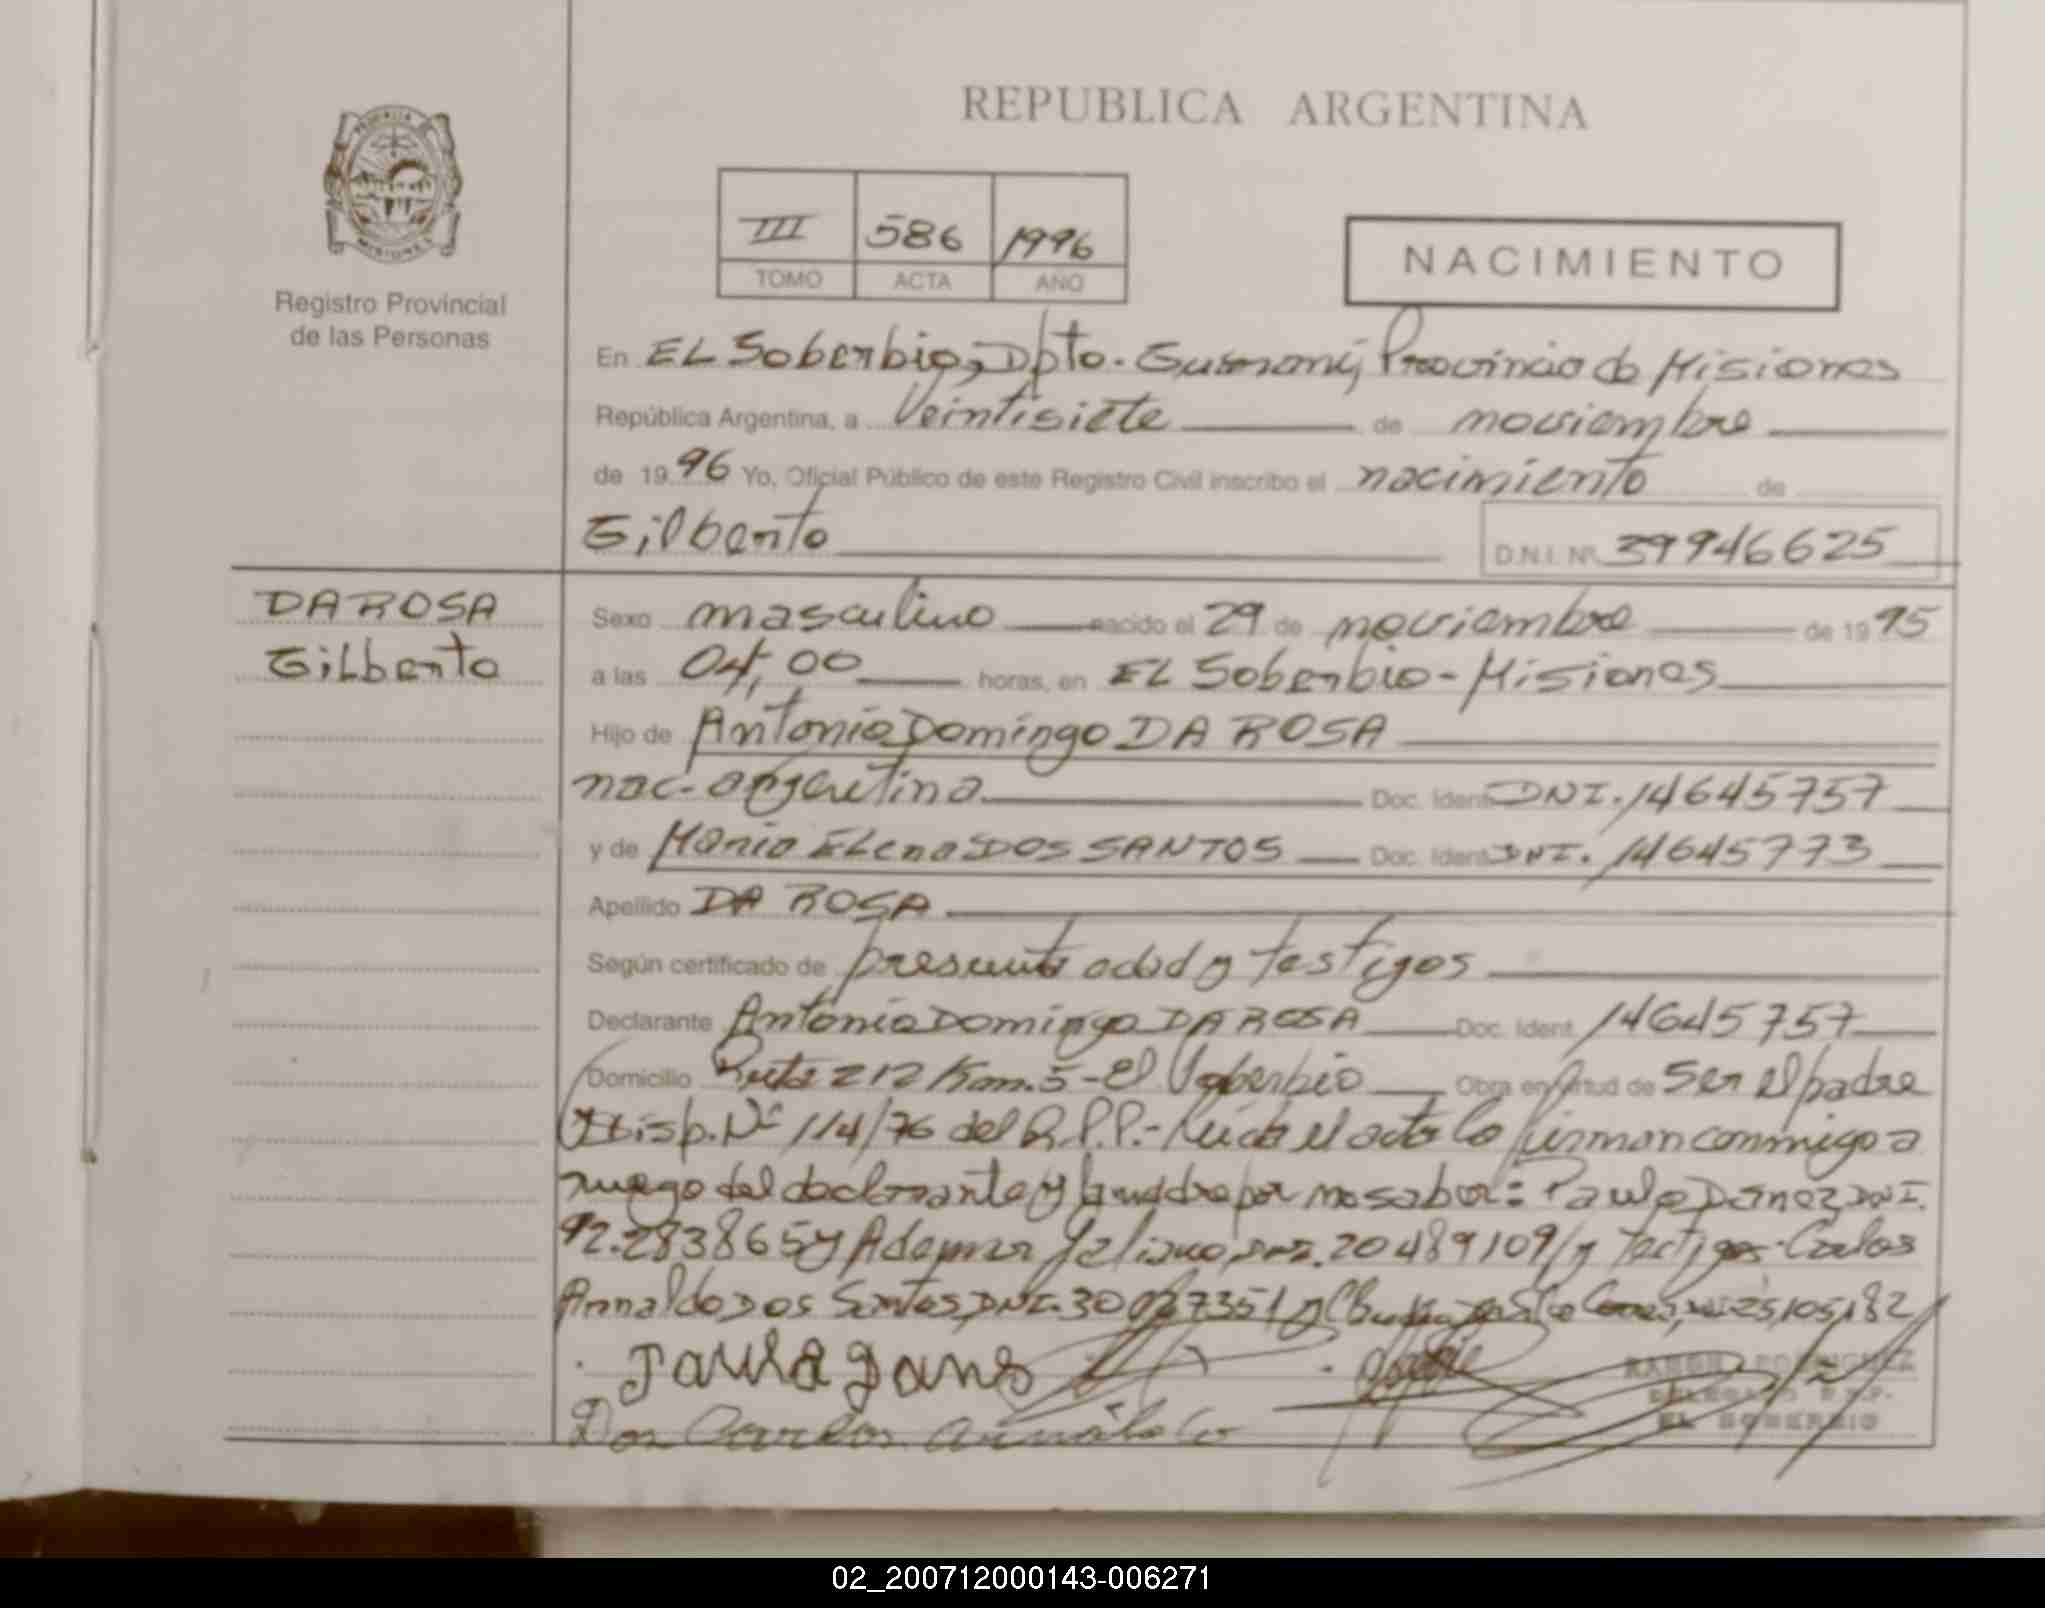 REPUBLICA ARGENTINA
III 586 1996
TOMO ACTA AÑO
NACIMIENTO
Registro Provincial
de las Personas
En EL Soberbio, Dpto. Guaraní, Provincia de Misiones
República Argentina, a Veintisiete de noviembre
de 1996 Yo, Oficial Público de este Registro Civil inscribo el nacimiento de
Gilberto D.N.I. Nº 39946625
DA ROSA
Gilberto
Sexo masculino nacido el 29 de noviembre de 1995
a las 04,00 horas, en EL Soberbio - Misiones
Hijo de Antonio Domingo DA ROSA
nac. argentina Doc. Ident. DNI. 14645757
y de Maria Elena DOS SANTOS Doc. Ident. DNI. 14645773
Apellido DA ROSA
Según certificado de presunta edad y testigos
Declarante Antonio Domingo DA ROSA Doc. Ident. 14645757
Domicilio Ruta 212 Km. 5 - El Soberbio Obra en virtud de Ser el padre
Disp. Nº 114/76 del R.P.P.- Leida el acta la firman conmigo a
ruego del declarante y la madre por no saber: Paula DNI.
92.283865 y Ademar DNI. 20489109 y testigos Carlos
Arnaldo Dos Santos, DNI. 30 7351 y 25,105,182
Paula
Dos Carlos
DELEGADO R.P.P.
EL SOBERBIO
02_200712000143-006271